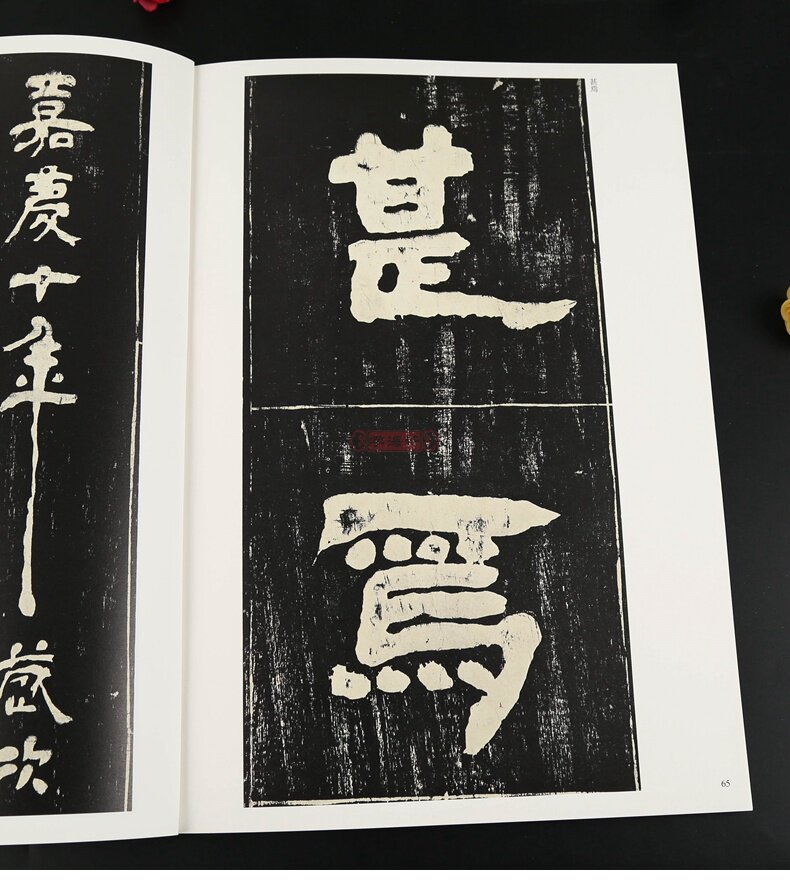 嘉慶十年歲次
甚焉
甚焉
65